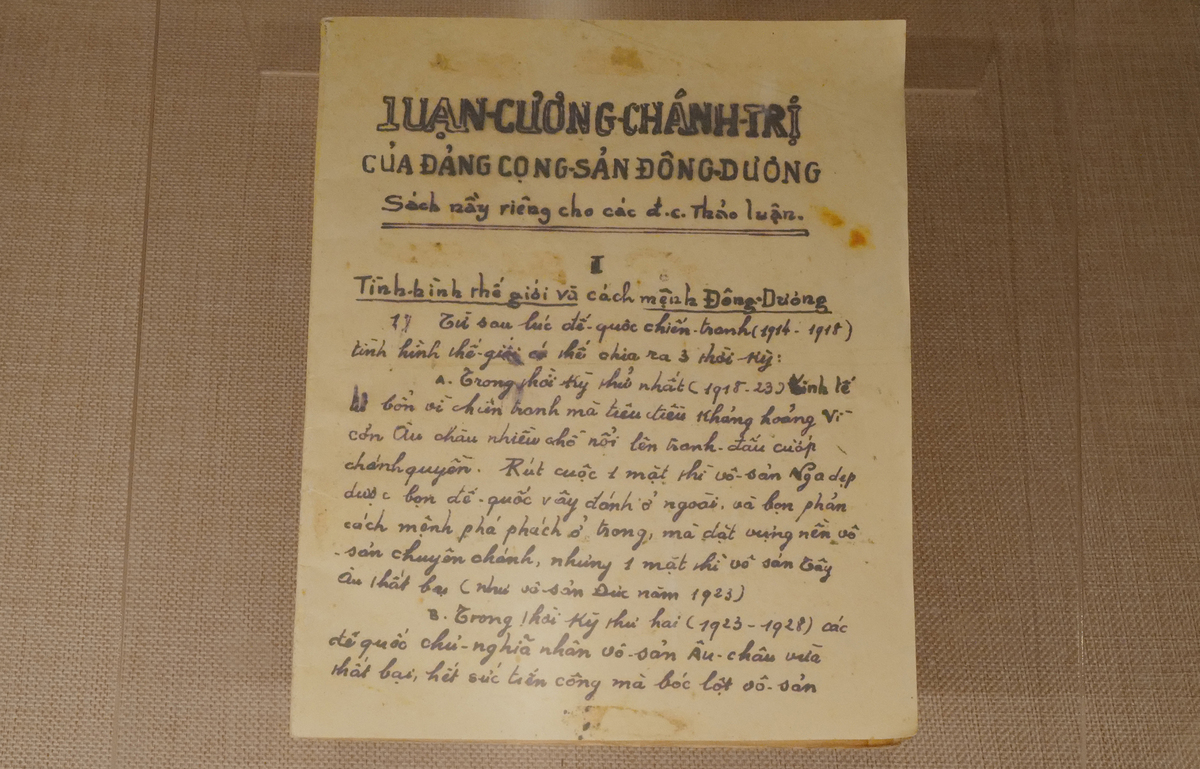 LUẬN-CƯƠNG-CHÁNH-TRỊ
CỦA ĐẢNG CỌNG-SẢN ĐÔNG-DƯƠNG
Sách nầy riêng cho các đ.c. Thảo luận.
I
Tình-hình thế giới và cách mệnh Đông-Dương
1) Từ sau lúc đế-quốc chiến-tranh (1914-1918)
tình hình thế-giới có thể chia ra 3 thời-kỳ:
A. Trong thời kỳ thứ nhất (1918-23) kinh tế
tư bổn vì chiến tranh mà tiêu điều khủng hoảng Vì
cớn Âu châu nhiều chỗ nổi lên tranh-đấu cướp
chánh quyền. Rút cuộc 1 mặt thì vô-sản Nga dẹp
được bọn đế-quốc vây đánh ở ngoài, và bọn phản
cách mệnh phá phách ở trong, mà dặt vựng nền vô
-sản chuyên chánh, nhưng 1 mặt thì vô sản Tây
Âu thất bại (như vô-sản Đức năm 1923)
B. Trong thời kỳ thứ hai (1923-1928) các
đế quốc chủ-nghĩa nhân vô-sản Âu-châu vừa
thất bại, hết sức tấn công mà bóc lột vô-sản